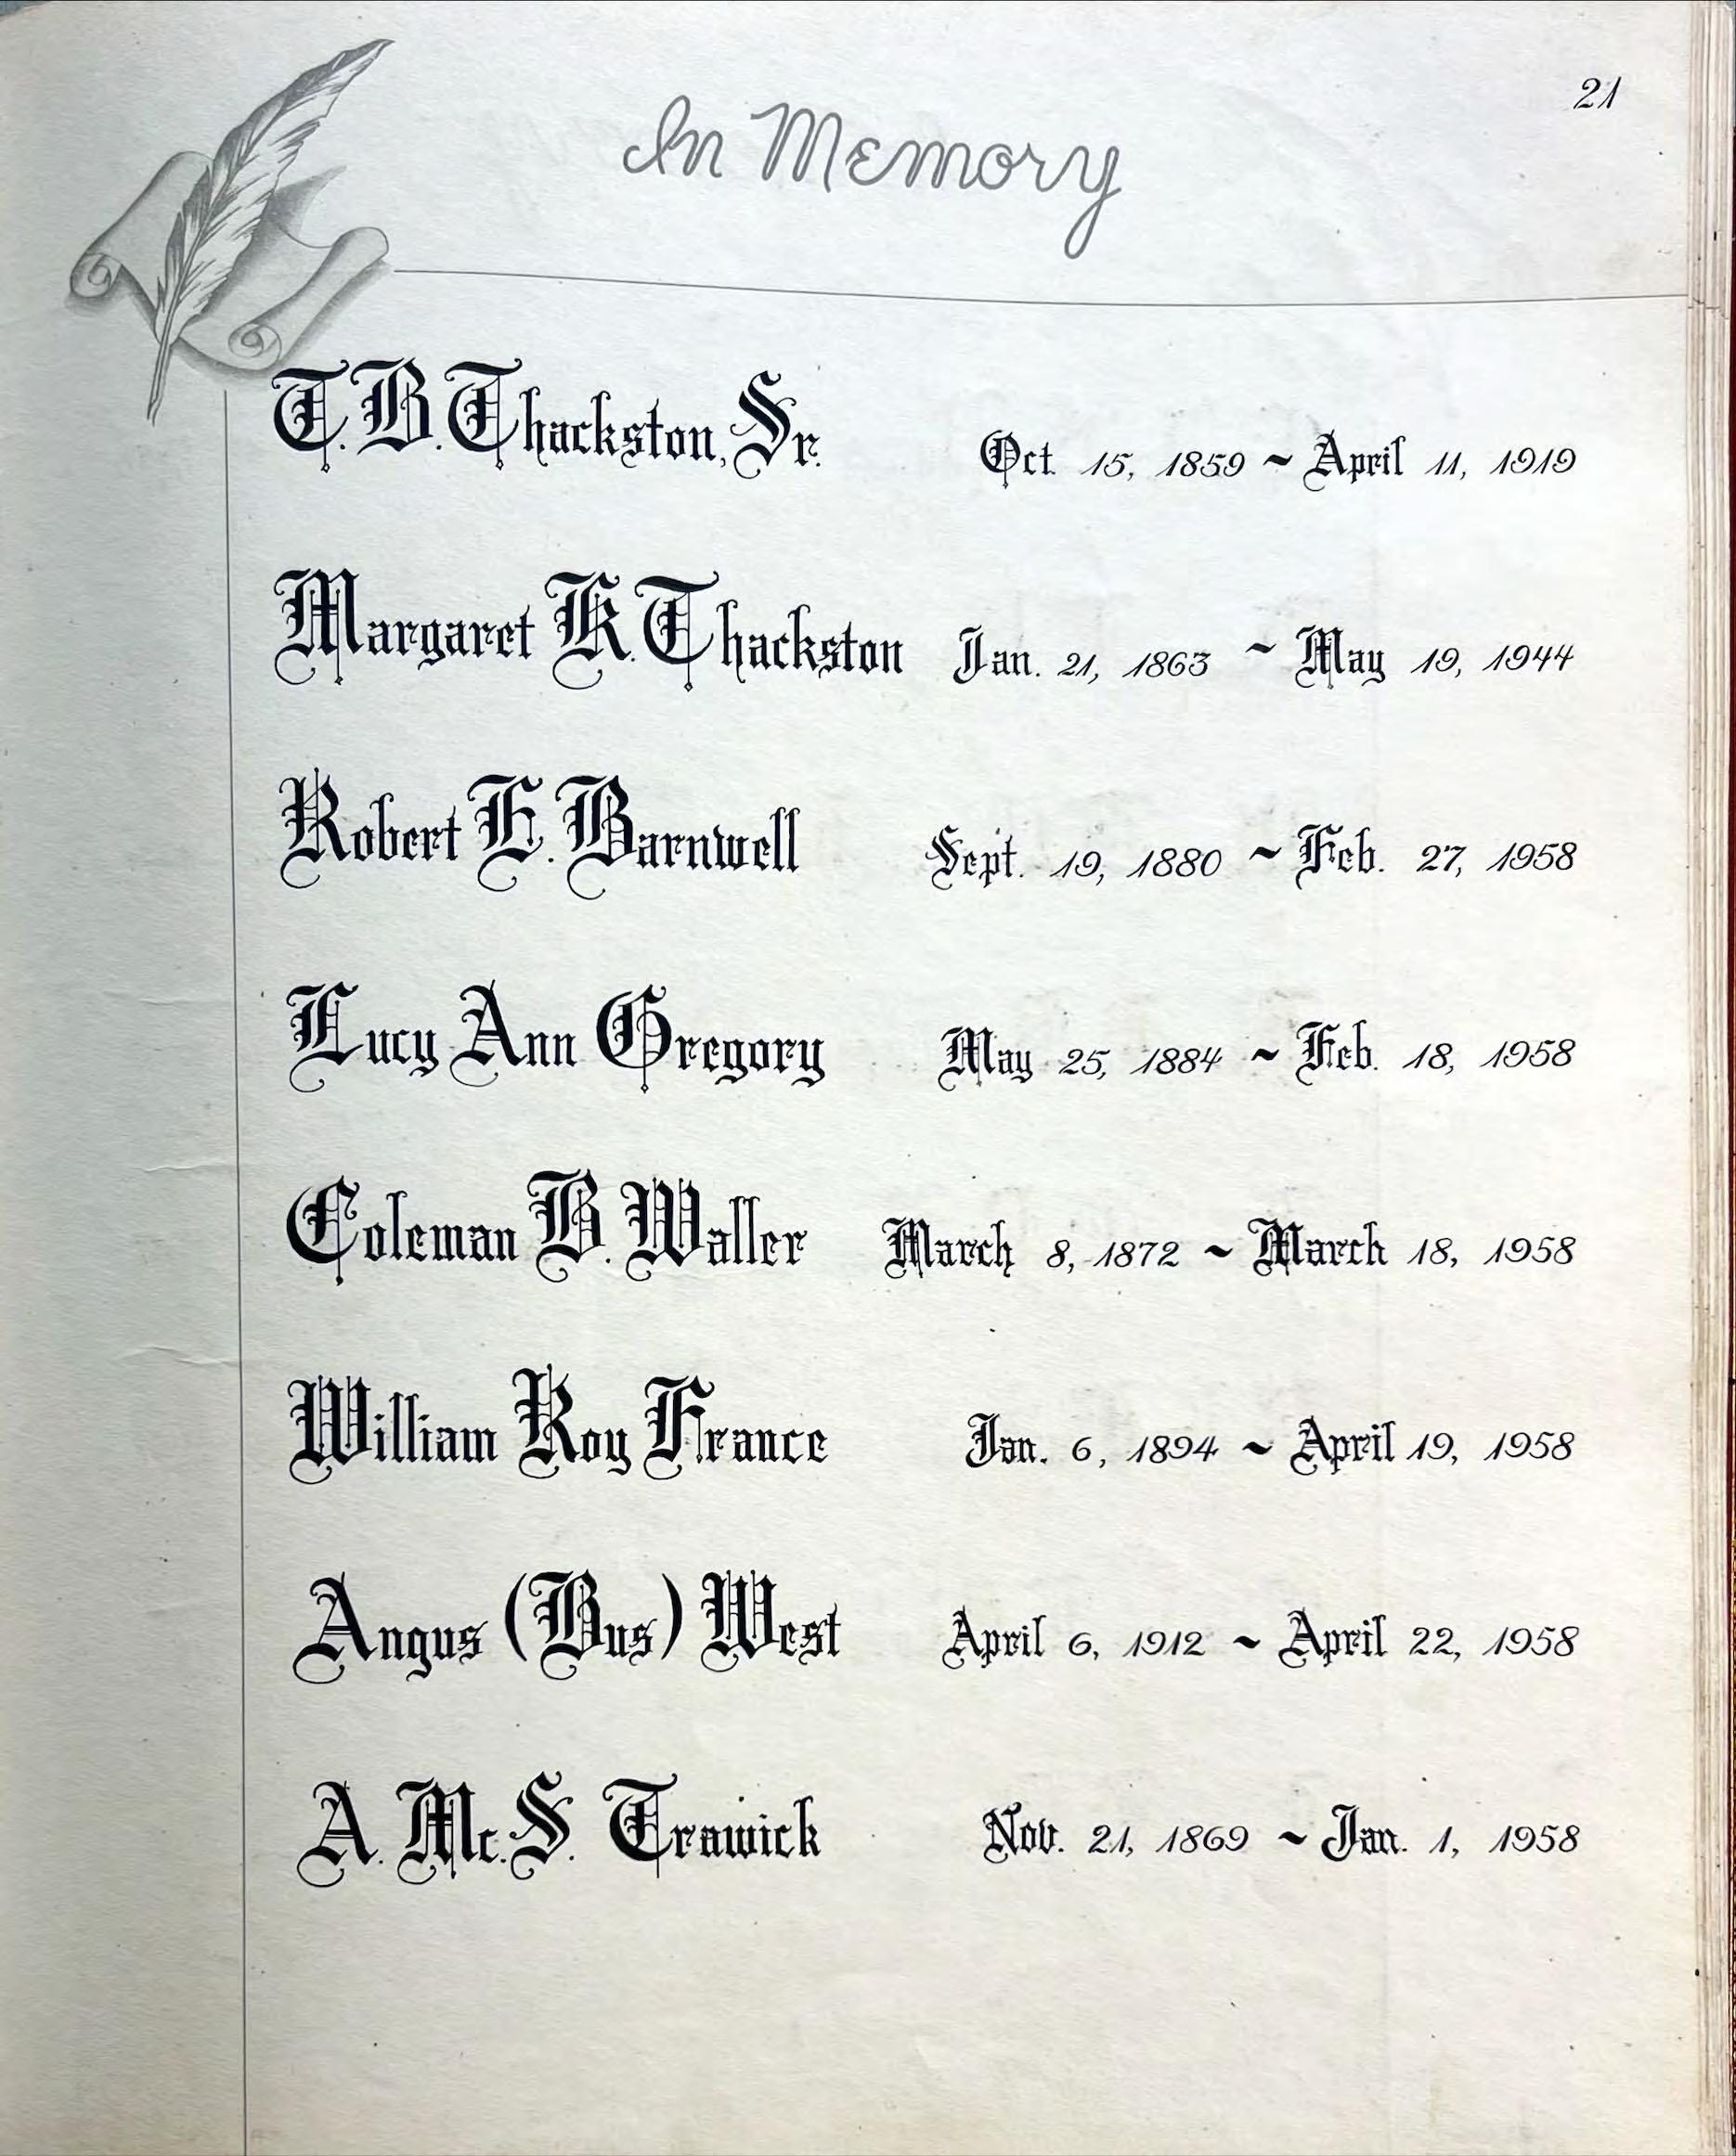 21
In Memory
T. B. Thackston, Sr. Oct. 15, 1859 ~ April 11, 1919
Margaret K. Thackston Jan. 21, 1863 ~ May 19, 1944
Robert E. Barnwell Sept. 19, 1880 ~ Feb. 27, 1958
Lucy Ann Gregory May 25, 1884 ~ Feb. 18, 1958
Coleman B. Waller March 8, 1872 ~ March 18, 1958
William Roy France Jan. 6, 1894 ~ April 19, 1958
Angus (Bus) West April 6, 1912 ~ April 22, 1958
A. Mc. S. Trawick Nov. 21, 1869 ~ Jan. 1, 1958